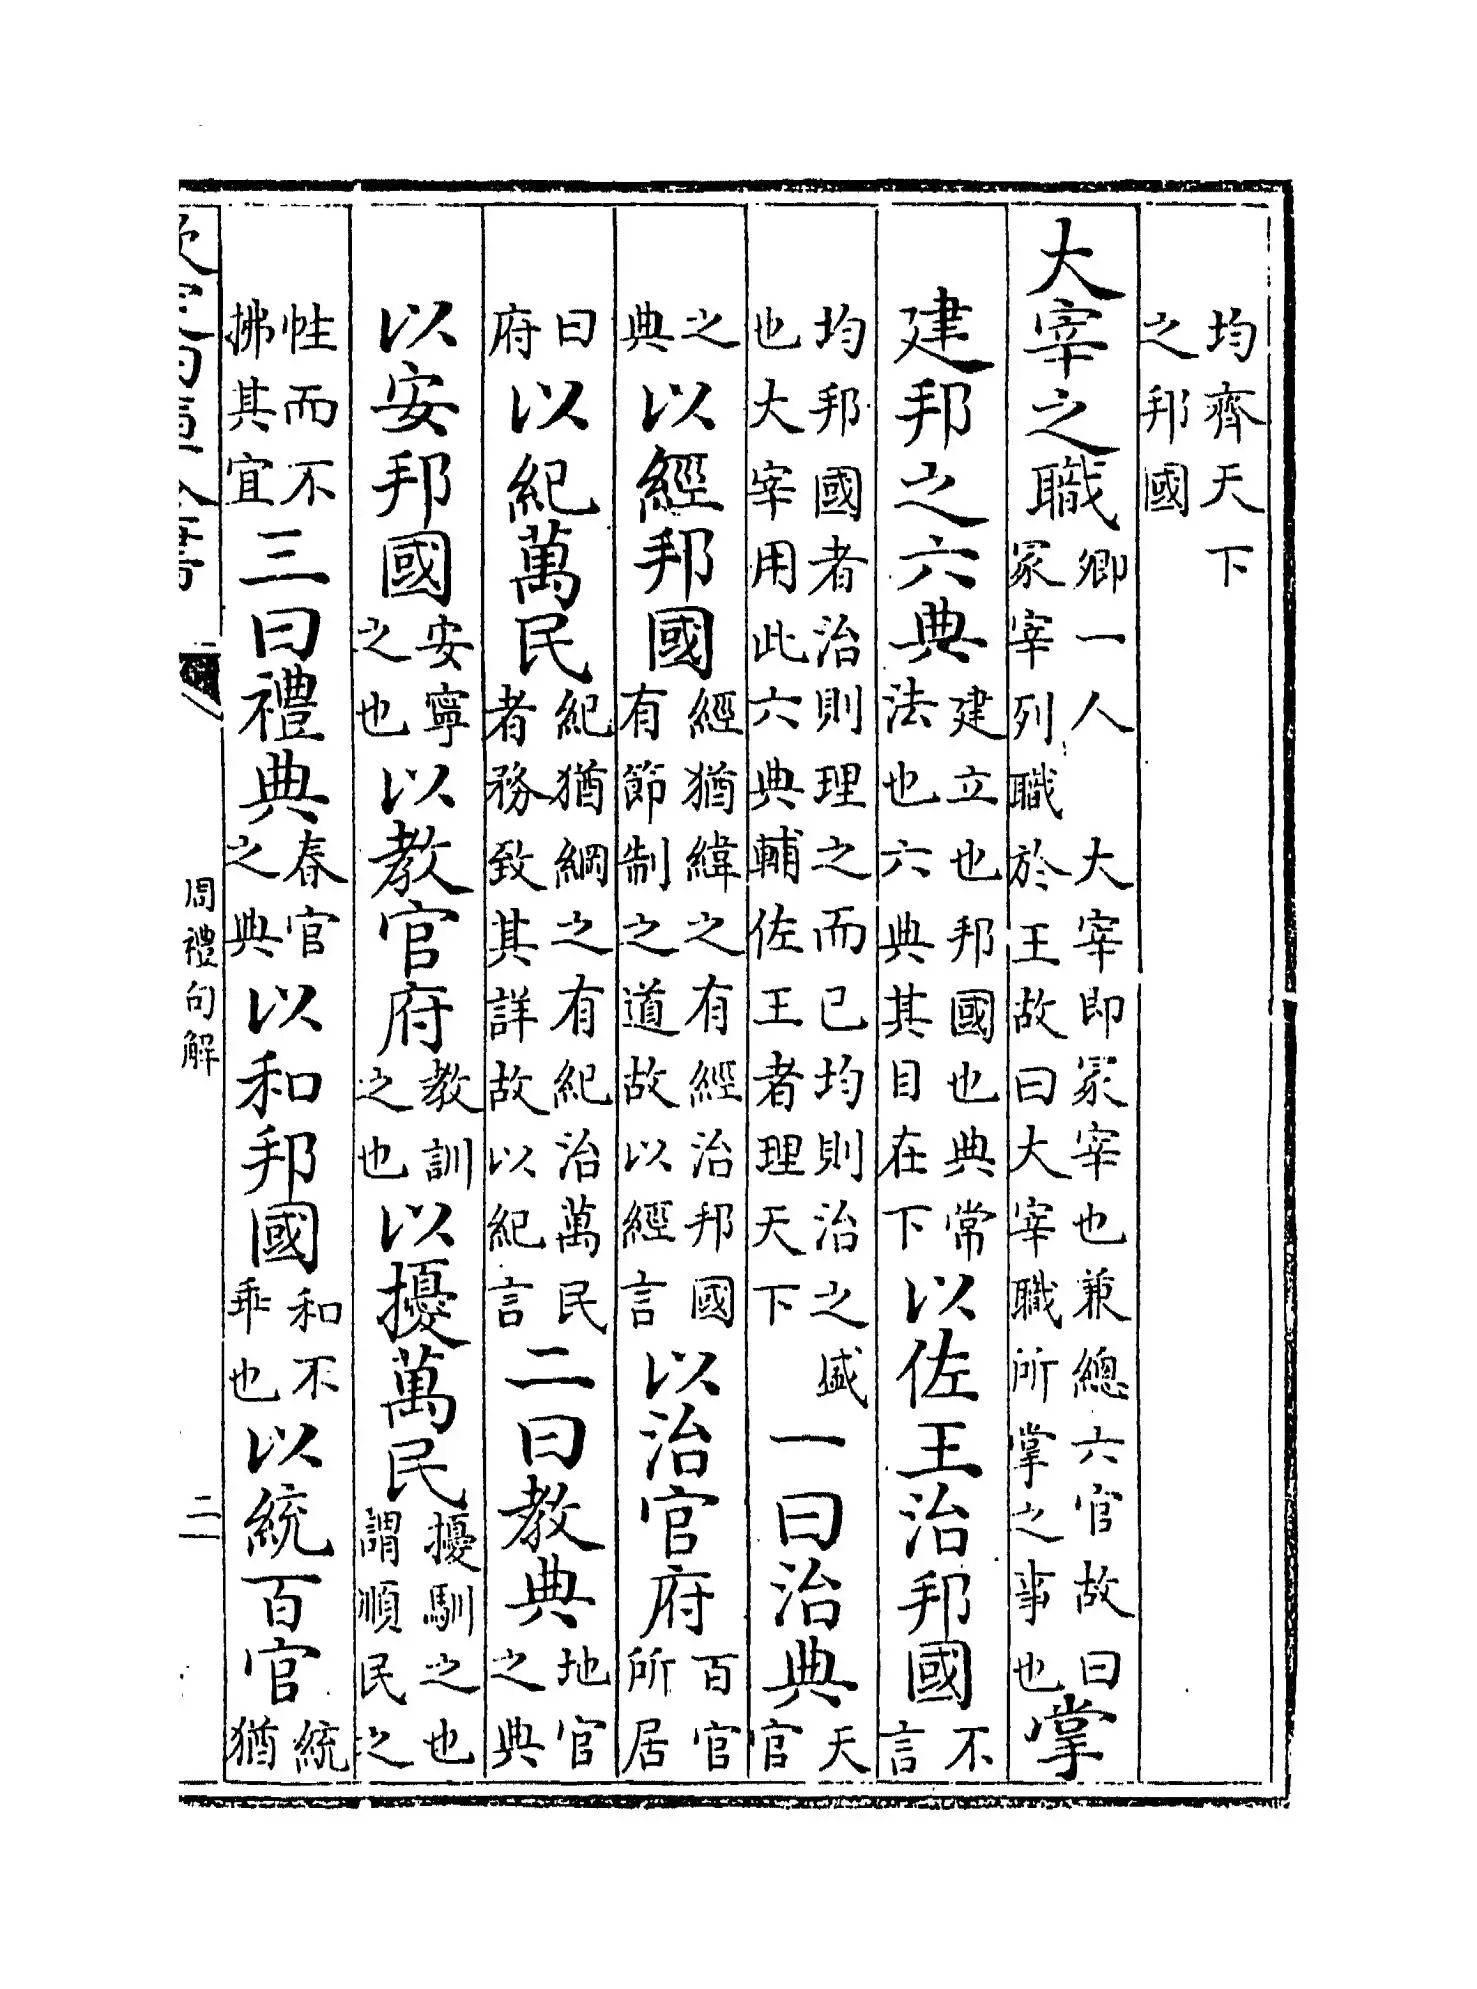 均齊天下之邦國
大宰之職卿一人　大宰即冢宰也兼總六官故曰冢宰列職於王故曰大宰職所掌之事也掌
建邦之六典建立也邦國也典常法也六典其目在下以佐王治邦國不言
均邦國者治則理之而已均則治之盛也大宰用此六典輔佐王者理天下一曰治典天官
之典以經邦國經猶緯之有經治邦國有節制之道故以經言以治官府百官所居
曰府以紀萬民紀猶綱之有紀治萬民者務致其詳故以紀言二曰教典地官之典
以安邦國安寧之也以教官府教訓之也以擾萬民擾馴之也謂順民之
性而不拂其宜三曰禮典春官之典以和邦國和不乖也以統百官統猶
欽定四庫全書
周禮句解
二